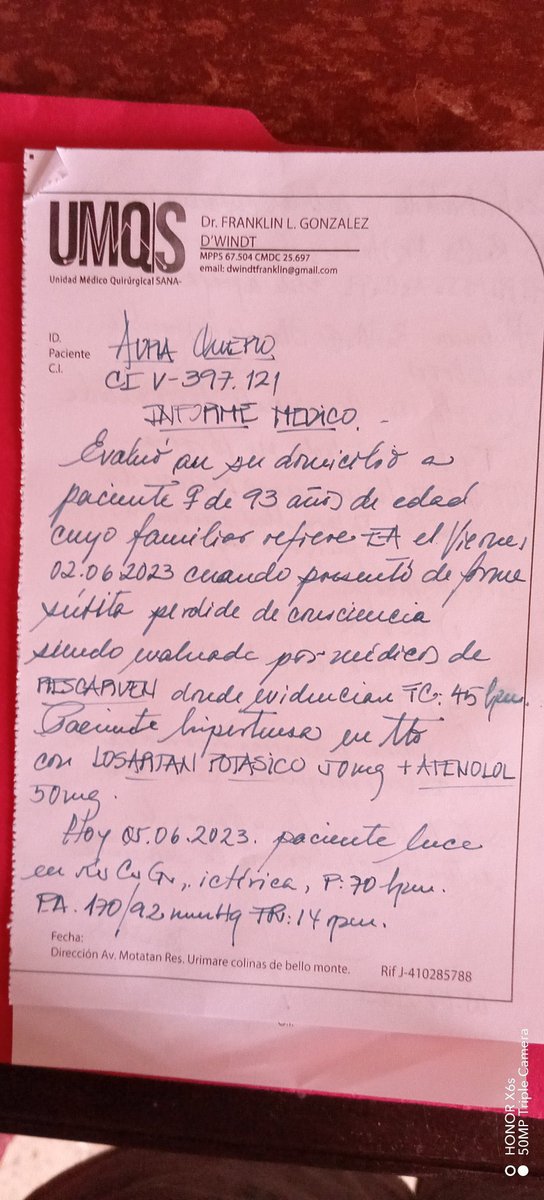 UMQS
Unidad Médico Quirúrgical SANA-
Dr. FRANKLIN L. GONZALEZ
D'WINDT
MPPS 67.504 CMDC 25.697
email: dwindtfranklin@gmail.com
ID.
Paciente AURA
C.I.
CI V-397.121
INFORME MEDICO.-
Evaluó en su domicilio a
paciente ♀ de 93 años de edad
cuyo familiar refiere EA el Viernes
02.06.2023 cuando presentó de forma
súbita perdida de consciencia
siendo evaluada por médicos de
RESCARVEN donde evidencian FC: 45 lpm.
Paciente hipertensa en tto
con LOSARTAN POTASICO 50mg + ATENOLOL
50mg.
Hoy 05.06.2023. paciente luce
en, ictérica, P: 70 lpm.
PA. 170/92 mmHg FR: 14 rpm.
Fecha:
Dirección Av. Motatan Res. Urimare colinas de bello monte. Rif J-410285788
HONOR X6s
50MP Triple Camera